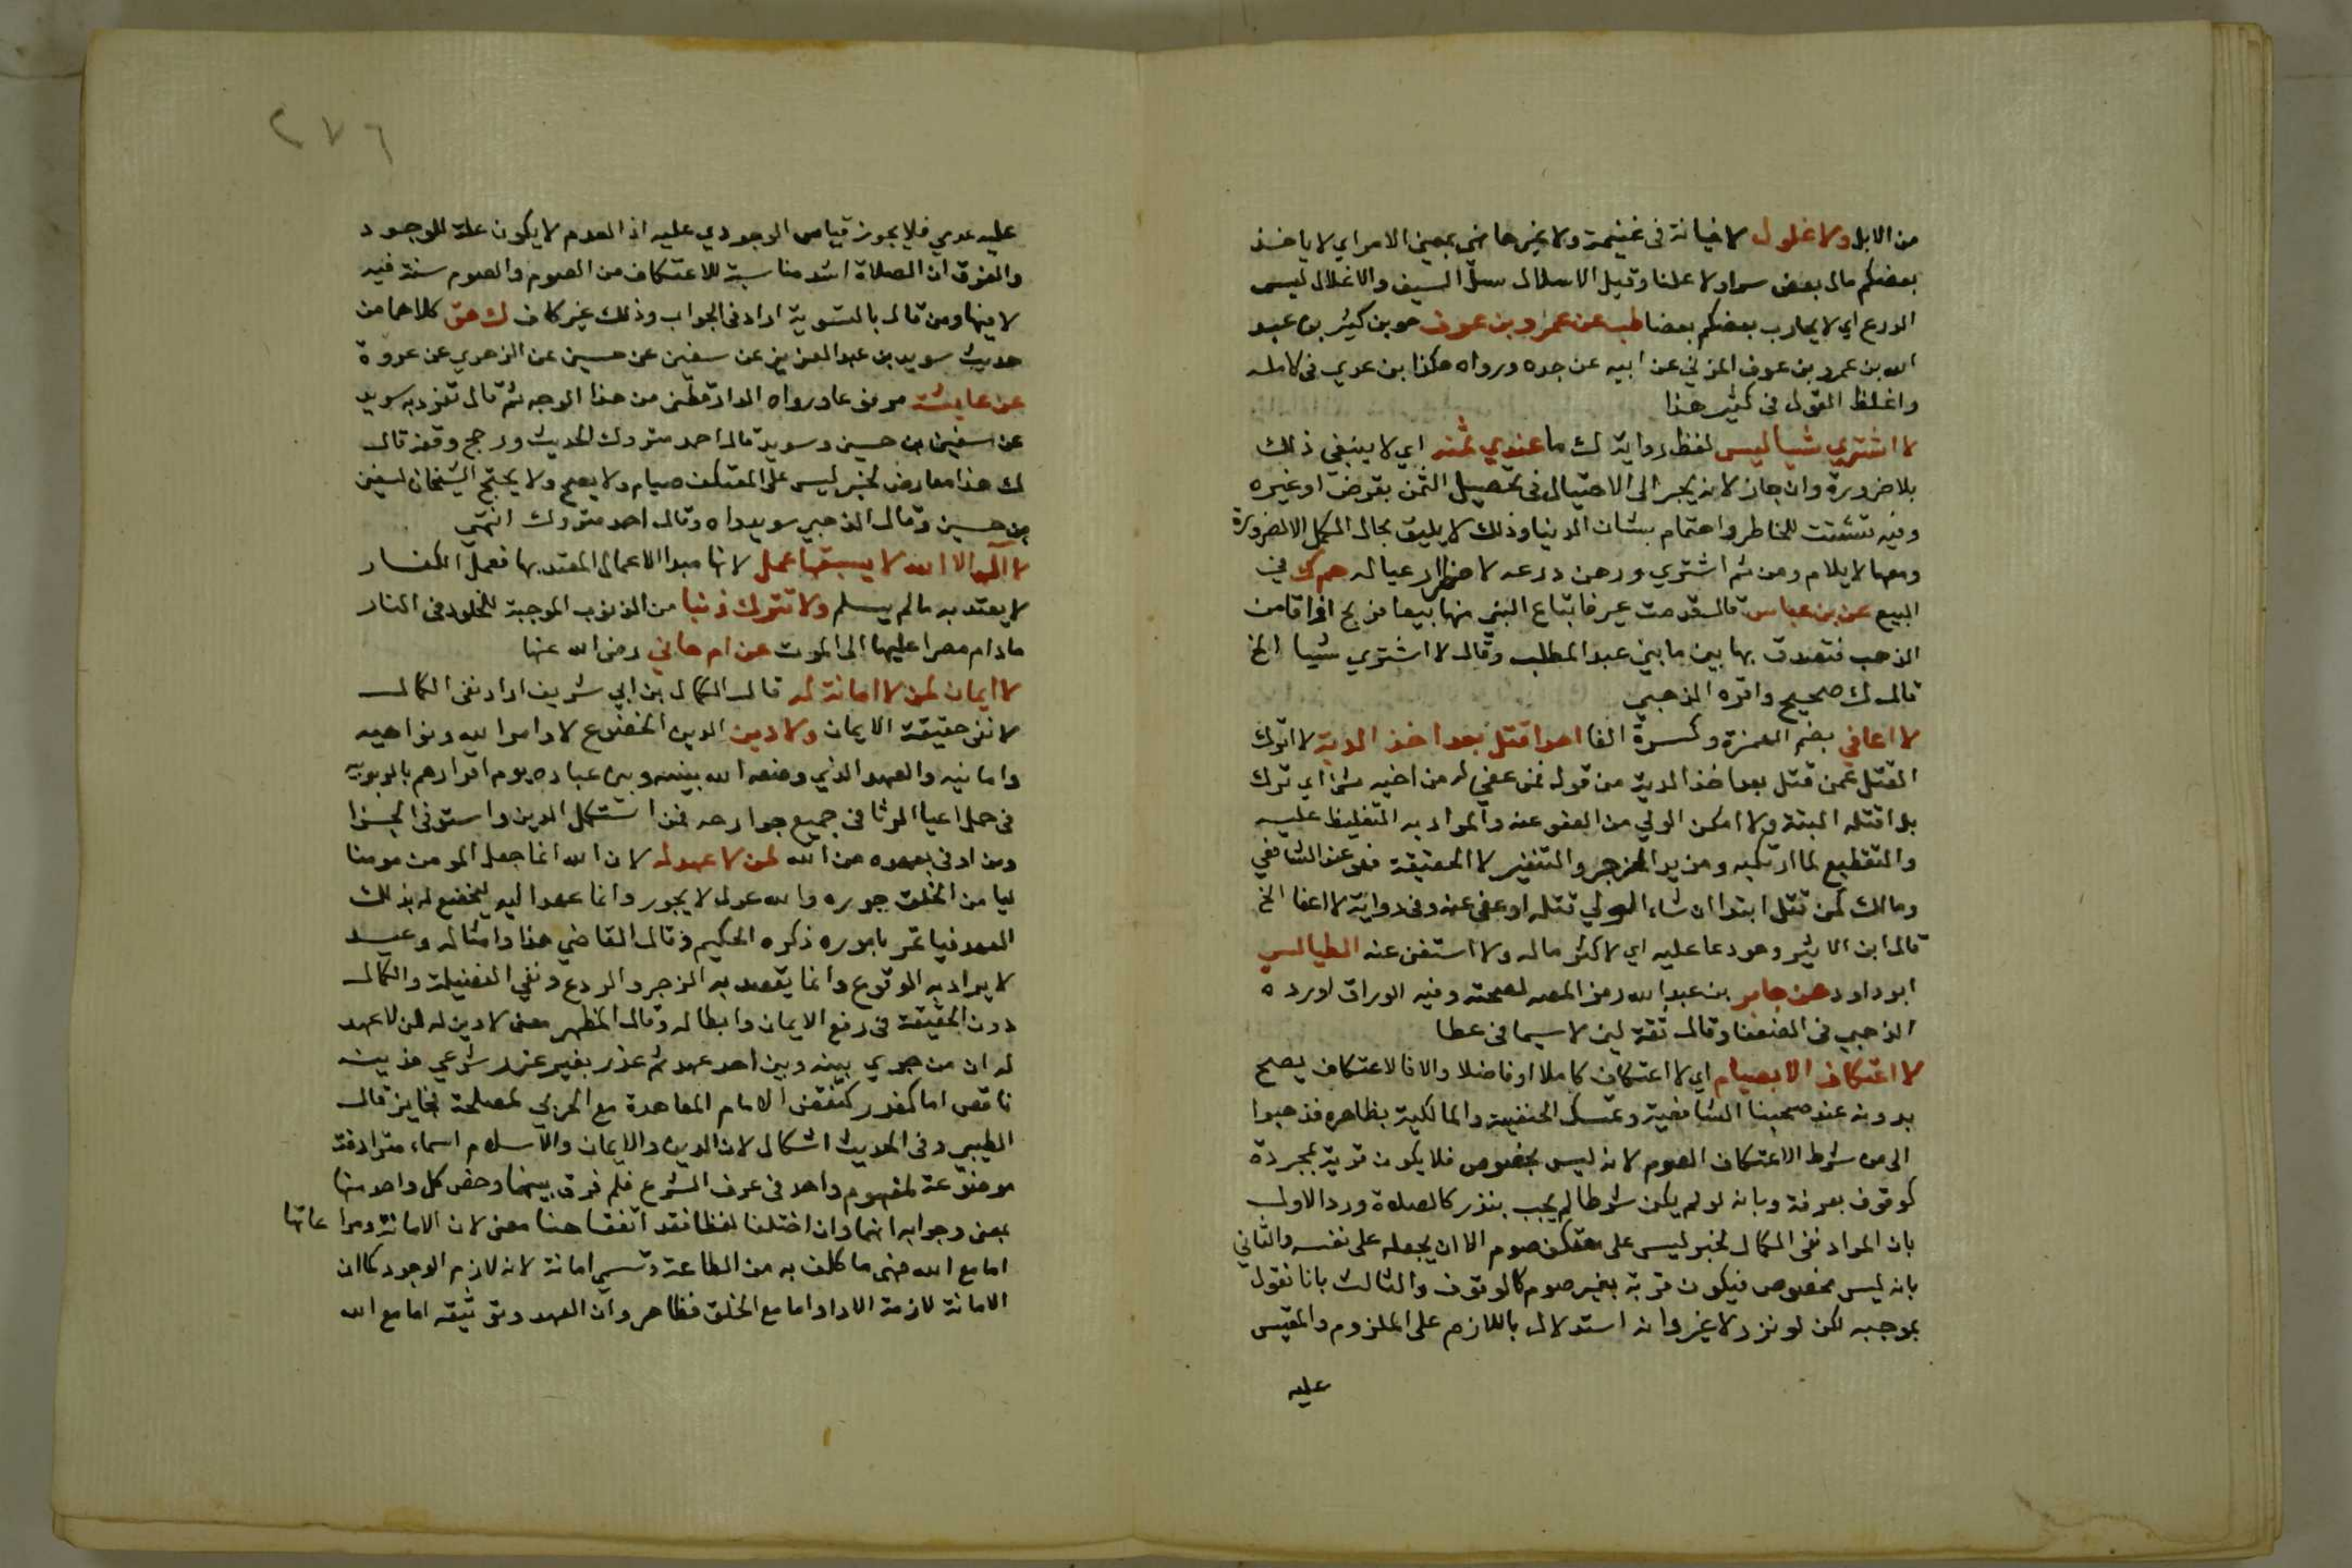 من الابل ولا غلول لا خيانة في غنيمة ولا غيرها نهي بمعنى الامر اي لا ياخذ
بعضكم مال بعض سرا ولا علنا وقيل الاسلال سل السيف والاغلال لبس
الدرع اي لا يحارب بعضكم بعضا طب عن عمرو بن عوف هو بن كثير بن عبد
الله بن عمرو بن عوف المزني عن ابيه عن جده ورواه هكذا بن عدي في كامله
واغلظ القول في كثير هذا
لا اشتري شيا ليس لفظ رواية ك ما عندي ثمنه اي لا ينبغي ذلك
بلا ضرورة وان جاز لانه يجر الى الاحتيال في تحصيل الثمن بقرض او غيره
وفيه تشتت للخاطر واهتمام بشان الدنيا وذلك لا يليق بحال الكمل الا لضرورة
ومعها لا يلام ومن ثم اشتري ورهن درعه لاضطرار عياله حم ك في
البيع عن بن عباس قال قدمت عير فابتاع النبي منها بيعا فربح اواقا من
الذهب فتصدق بها بين ما بني عبد المطلب وقال لا اشتري شيا الخ
قال ك صحيح واقره الذهبي
لا اعافي بضم الهمزة وكسرة الفا احدا قتل بعد اخذ الدية لا اترك
القتل عمن قتل بعد اخذ الدية من قوله فمن عفي له من اخيه شي اي ترك
بل اقتله البتة ولا امكن الولي من العفو عنه والمراد به التغليظ عليه
والتقطيع لما ارتكبه ومزيد الزجر والتنفير لا الحقيقة فهو عند الشافعي
ومالك كمن قتل ابتدا ان شاء الولي قتله او عفى عنه وفي رواية لا اعفا الخ
قال ابن الاثير وهو دعا عليه اي لا كثر ماله ولا استغن عنه الطيالسي
ابو داود عن جابر بن عبد الله رمز المص لصحته وفيه الوراق اورده
الذهبي في الضعفا وقال ثقة لين لا سيما في عطا
لا اعتكاف الا بصيام اي لا اعتكاف كاملا او فاضلا والا فالاعتكاف يصح
بدونه عند صحبنا الشافعية وتمسك الحنفية والمالكية بظاهره فذهبوا
الى من شرط الاعتكاف الصوم لانه ليس مخصوص فلا يكون قربة بمجردة
كوقوف بعرفة وبانه لو لم يكن شرطا لم يجب بنذر كالصلاة ورد الاول
بان المراد نفي الكمال لخبر ليس على معتكف صوم الا ان يجعله على نفسه والثاني
بانه ليس مخصوص فيكون قربة بغير صوم كالوقوف والثالث بانا نقول
بموجبه لكن لو نزر لا غير وانه استدلال باللازم على الملزوم والمقيس
عليه
٢٧٦
عليه عدمي فلا يجوز قياس الوجودي عليه اذ العدم لا يكون علة للوجود
والفرق ان الصلاة اشد مناسبة للاعتكاف من الصوم والصوم سنة فيه
لا فيها ومن قال بالتسوية اراد في الجواب وذلك غير كاف ك هق كلاهما من
حديث سويد بن عبد العزيز عن سفين عن حسين عن الزهري عن عروة
عن عايشة مرفوعا ورواه الدارقطني من هذا الوجه ثم قال تفرد به سويد
عن سفين بن حسين وسويد قال احمد متروك الحديث ورجح وقفه قال
ك هذا معارض لخبر ليس على المعتكف صيام ولا يصح ولا يحتج الشيخان لسفين
بن حسين وقال الذهبي سويد واه وقال احمد متروك انتهى
لا اله الا الله لا يسبقها عمل لانها مبدا الاعمال المعتد بها فعمل الكفار
لا يعتد به ما لم يسلم ولا تترك ذنبا من الذنوب الموجبة للخلود في النار
مادام مصرا عليها الى الموت عن ام هاني رضي الله عنها
لا ايمان لمن لا امانة له قال الكمال بن ابي شريف اراد نفى الكمال
لا نفى حقيقة الايمان ولا دين الدين الخضوع لاوامر الله ونواهيه
وامانيه والعهد الذي وضعه الله بينه وبين عباده يوم اقرارهم بالربوبية
في حمل اعيا الوثاق في جميع جوارحه فمن استكمل الدين واستوفى الجزا
ومن اوفى بعهده من الله لمن لا عهد له لان الله انما جعل المومن مومنا
ليامن الخلق جوره والله عدل لا يجور وانما عهد اليه ليخضع له بذلك
العهد فياتمر باموره ذكره الحكيم وقال القاضي هذا وامثاله وعيد
لا يراد به الوقوع وانما يقصد به الزجر والردع ونفي الفضيلة والكمال
دون الحقيقة في رفع الايمان وابطاله وقال المظهر معنى لا دين له لمن لا عهد
له ان من جرى بينه وبين احد عهد ثم غدر بغير عذر شرعي فدينه
ناقص اما كعذر كنقض الامام المعاهدة مع الحربي لمصلحة فجايز قال
الطيبي وفي الحديث اشكال لان الدين والايمان والاسلام اسماء مترادفة
موضوعة لمفهوم واحد في عرف الشرع فلم فرق بينهما وخص كل واحد منها
بمعنى وجوابه انهما وان اختلفا لفظا فقد اتفقا هنا معنى لان الامانة ومراعاتها
اما مع الله فهي ما كلف به من الطاعة وتسمى امانة لانه لازم الوجود كما ان
الامانة لازمة الادا واما مع الخلق فظاهر وان العهد وتوثيقه اما مع الله